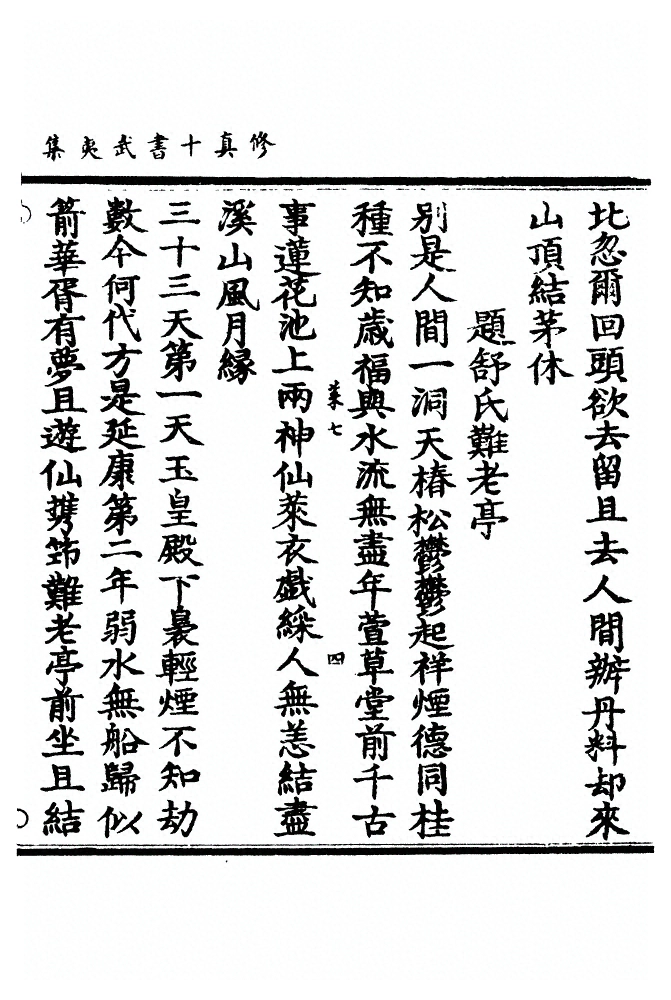 修真十書武夷集
比忽爾回頭欲去留且去人間辦丹料却來
山頂結茅休
題舒氏難老亭
别是人間一洞天椿松鬱鬱起祥煙德同桂
種不知歳福與水流無盡年萱草堂前千古
菜七
四
事蓮花池上兩神仙萊衣戯綵人無恙結盡
溪山風月縁
三十三天第一天玉皇殿下裊輕煙不知劫
數今何代方是延康第二年弱水無船歸似
箭華胥有夢且遊仙携筇難老亭前坐且結